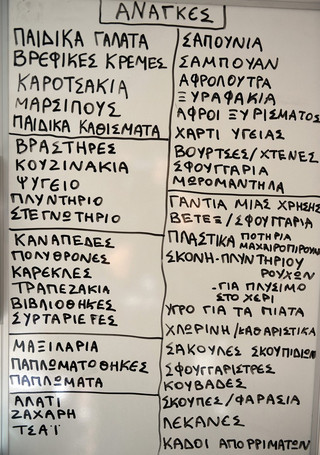 ΑΝΑΓΚΕΣ
ΠΑΙΔΙΚΑ ΓΑΛΑΤΑ
ΒΡΕΦΙΚΕΣ ΚΡΕΜΕΣ
ΚΑΡΟΤΣΑΚΙΑ
ΜΑΡΣΙΠΟΥΣ
ΠΑΙΔΙΚΑ ΚΑΘΙΣΜΑΤΑ
ΒΡΑΣΤΗΡΕΣ
ΚΟΥΖΙΝΑΚΙΑ
ΨΥΓΕΙΟ
ΠΛΥΝΤΗΡΙΟ
ΣΤΕΓΝΩΤΗΡΙΟ
ΚΑΝΑΠΕΔΕΣ
ΠΟΛΥΘΡΟΝΕΣ
ΚΑΡΕΚΛΕΣ
ΤΡΑΠΕΖΑΚΙΑ
ΒΙΒΛΙΟΘΗΚΕΣ
ΣΥΡΤΑΡΙΕΡΕΣ
ΜΑΞΙΛΑΡΙΑ
ΠΑΠΛΩΜΑΤΟΘΗΚΕΣ
ΠΑΠΛΩΜΑΤΑ
ΑΛΑΤΙ
ΖΑΧΑΡΗ
ΤΣΑΪ
ΣΑΠΟΥΝΙΑ
ΣΑΜΠΟΥΑΝ
ΑΦΡΟΛΟΥΤΡΑ
ΞΥΡΑΦΑΚΙΑ
ΑΦΡΟΙ ΞΥΡΙΣΜΑΤΟΣ
ΧΑΡΤΙ ΥΓΕΙΑΣ
ΒΟΥΡΤΣΕΣ/ΧΤΕΝΕΣ
ΣΦΟΥΓΓΑΡΙΑ
ΜΩΡΟΜΑΝΤΗΛΑ
ΓΑΝΤΙΑ ΜΙΑΣ ΧΡΗΣΗΣ
ΒΕΤΕΞ/ΣΦΟΥΓΓΑΡΙΑ
ΠΛΑΣΤΙΚΑ ΠΟΤΗΡΙΑ
ΜΑΧΑΙΡΟΠΙΡΟΥΝΑ
ΣΚΟΝΗ-ΠΛΥΝΤΗΡΙΟΥ
ΡΟΥΧΩΝ
-ΓΙΑ ΠΛΥΣΙΜΟ
ΣΤΟ ΧΕΡΙ
ΥΓΡΟ ΓΙΑ ΤΑ ΠΙΑΤΑ
ΧΛΩΡΙΝΗ/ΚΑΘΑΡΙΣΤΙΚΑ
ΣΑΚΟΥΛΕΣ ΣΚΟΥΠΙΔΙΩΝ
ΣΦΟΥΓΓΑΡΙΣΤΡΕΣ
ΚΟΥΒΑΔΕΣ
ΣΚΟΥΠΕΣ/ΦΑΡΑΣΙΑ
ΛΕΚΑΝΕΣ
ΚΑΔΟΙ ΑΠΟΡΡΙΜΑΤΩΝ